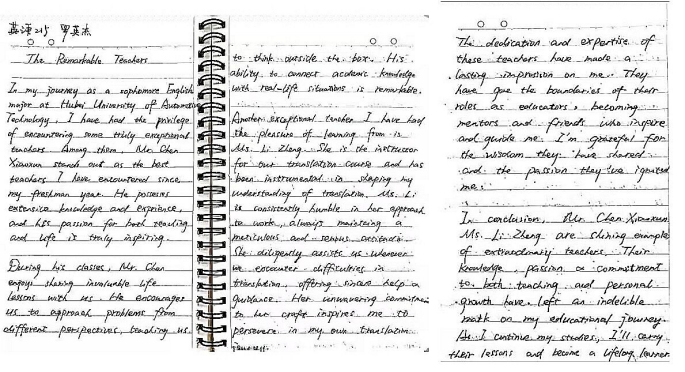 英语215 罗英杰
The Remarkable Teachers
In my journey as a sophomore English
major at Hubei University of Automotive
Technology, I have had the privilege
of encountering some truly exceptional
teachers. Among them, Mr. Chen
Xiaoxun stands out as the best
teachers I have encountered since
my freshman year. He possesses
extensive knowledge and experience,
and his passion for both teaching
and life is truly inspiring.
During his classes, Mr. Chen
enjoys sharing invaluable life
lessons with us. He encourages
us to approach problems from
different perspectives, teaching us
to think outside the box. His
ability to connect academic knowledge
with real-life situations is remarkable.
Another exceptional teacher I have had
the pleasure of learning from is
Ms. Li Zheng. She is the instructor
for our translation course and has
been instrumental in shaping my
understanding of translation. Ms. Li
is consistently humble in her approach
to work, always maintaining a
meticulous and serious
She diligently assists us whenever
we encounter difficulties in
translation, offering sincere help &
guidance. Her unwavering commitment
to her craft inspires me to
persevere in my own translation
The dedication and expertise of
these teachers have made a
lasting impression on me. They
have gone the boundaries of their
roles as educators, becoming
mentors and friends who inspire
and guide me. I'm grateful for
the wisdom they have shared
and the passion they've ignited
me.
In conclusion, Mr. Chen Xiaoxun
Ms. Li Zheng are shining example
of extraordinary teachers. Their
knowledge, passion & commitment
to both teaching and personal
growth have left an indelible
mark on my educational journey.
As I continue my studies, I'll carry
their lessons and become a lifelong learner